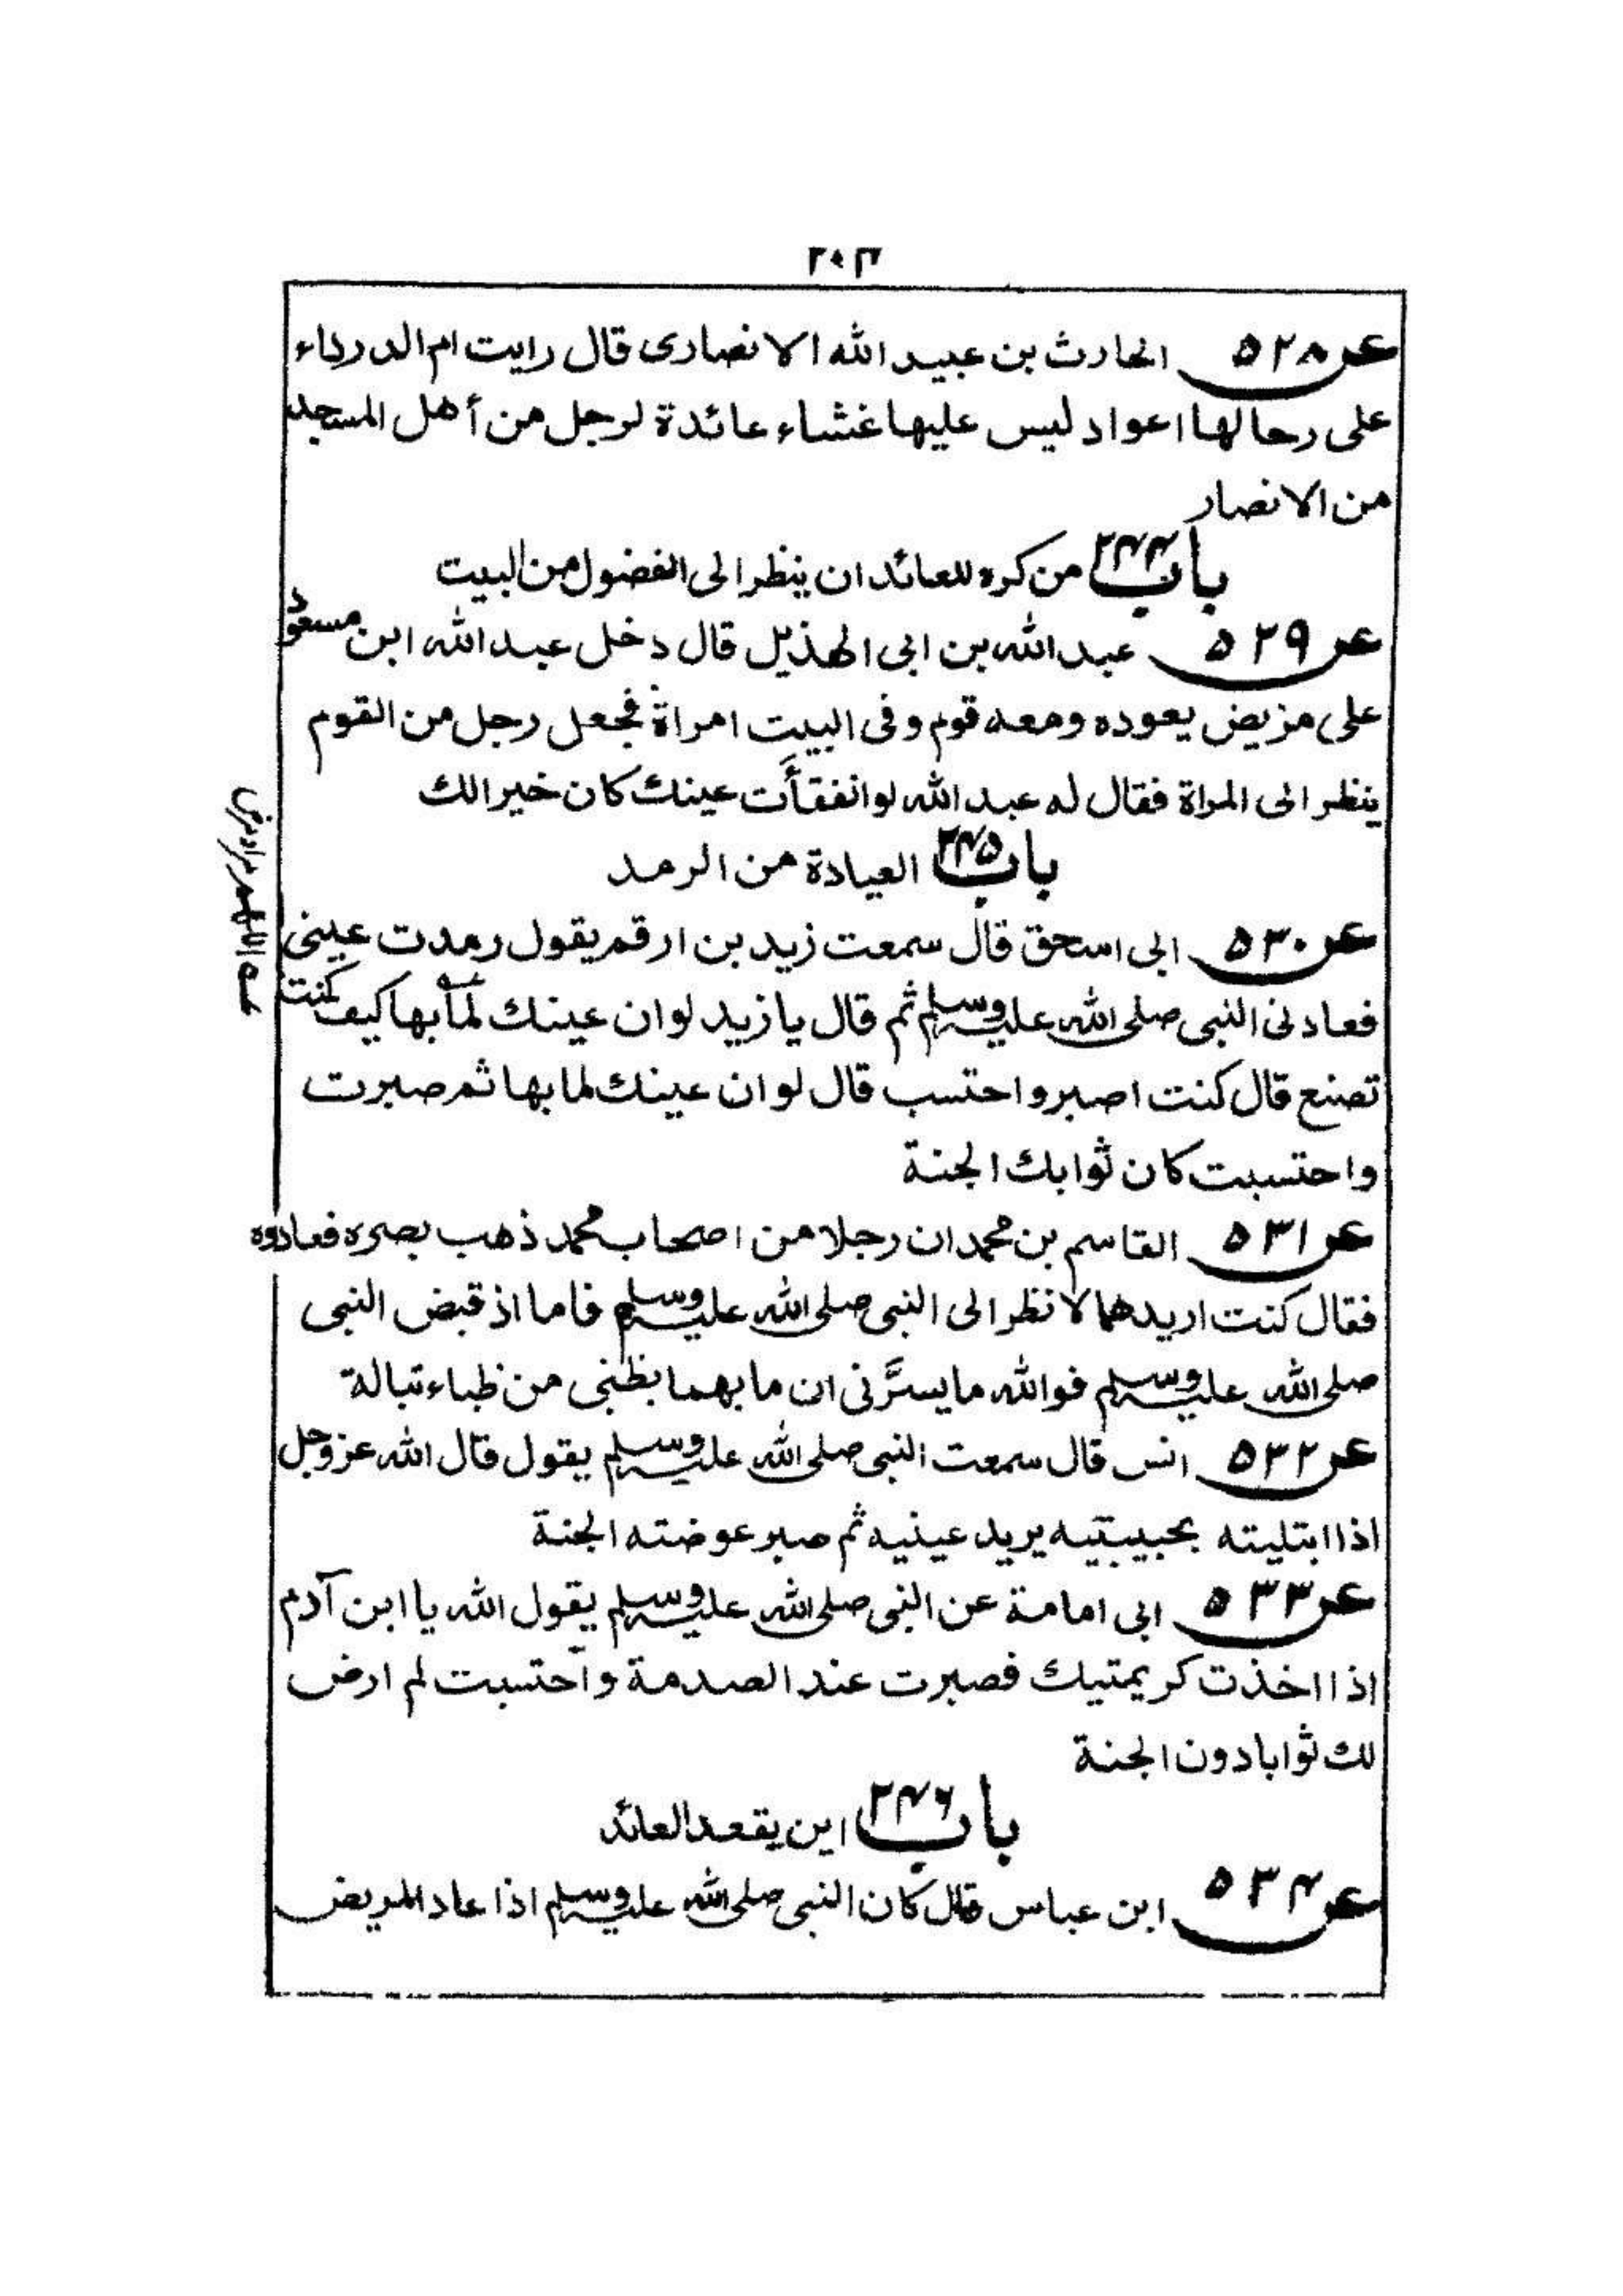 ۲۰۳
عن ۵۲۸ الحارث بن عبيد الله الانصارى قال رايت ام الدرداء
على رحالها اعواد ليس عليها غشاء عائدة لرجل من أهل المسجد
من الانصار
باب ۲۴۴ من كره للعائد ان ينظر الى الفضول من البيت
عن ۵۲۹ عبد الله بن ابى الهذيل قال دخل عبد الله ابن مسعود
على مريض يعوده ومعه قوم وفى البيت امراة فجعل رجل من القوم
ينظر الى المراة فقال له عبد الله لو انفقأت عينك كان خيرا لك
باب ۲۴۵ العيادة من الرمد
عن ۵۳۰ ابى اسحق قال سمعت زيد بن ارقم يقول رمدت عينى
فعادنى النبى صلى الله عليه وسلم ثم قال يا زيد لو ان عينك لما بها كيف كنت
تصنع قال كنت اصبر واحتسب قال لو ان عينك لما بها ثم صبرت
واحتسبت كان ثوابك الجنة
عن ۵۳۱ القاسم بن محمد ان رجلا من اصحاب محمد ذهب بصره فعادوه
فقال كنت اريدهما لانظر الى النبى صلى الله عليه وسلم فاما اذ قبض النبى
صلى الله عليه وسلم فوالله ما يسرَّنى ان ما بهما بظبى من ظباء تبالة
عن ۵۳۲ انس قال سمعت النبى صلى الله عليه وسلم يقول قال الله عز وجل
اذا ابتليته بحبيبتيه يريد عينيه ثم صبر عوضته الجنة
عن ۵۳۳ ابى امامة عن النبى صلى الله عليه وسلم يقول الله يا ابن آدم
اذا اخذت كريمتيك فصبرت عند الصدمة واحتسبت لم ارض
لك ثوابا دون الجنة
باب ۲۴۶ اين يقعد العائد
عن ۵۳۴ ابن عباس قال كان النبى صلى الله عليه وسلم اذا عاد المريض